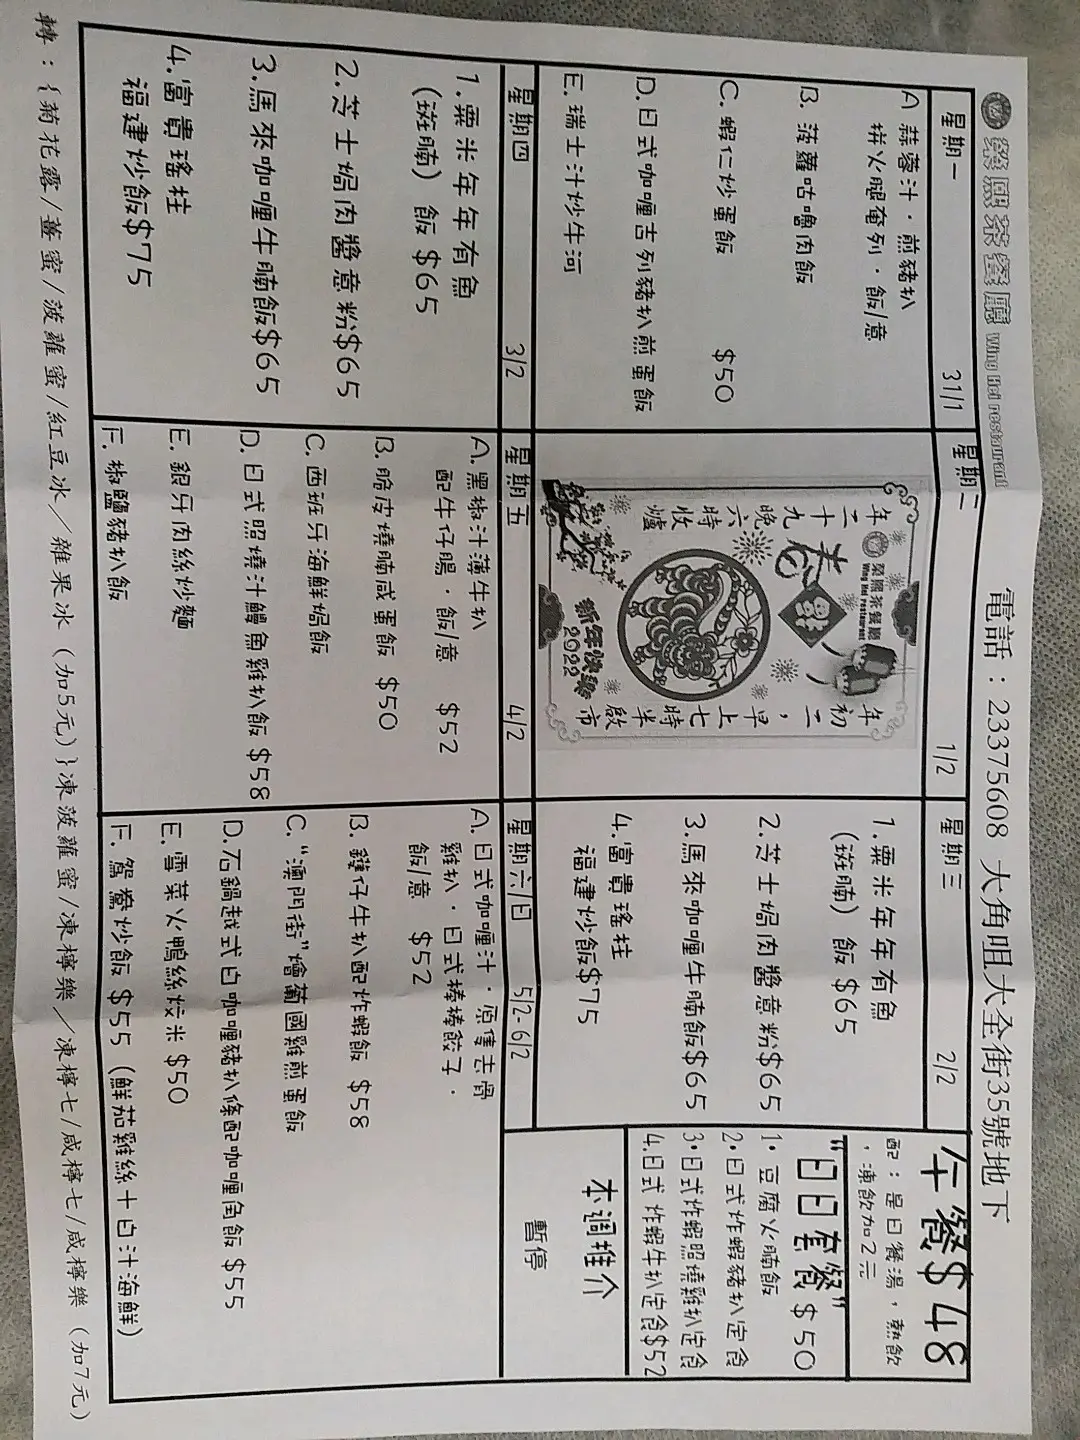 榮熙茶餐廳 Wing Hei restaurant
電話：23375608 大角咀大全街35號地下
星期一 31/1
A 蒜蓉汁．煎豬扒
拼火腿奄列．飯/意
B. 菠蘿咕嚕肉飯
C. 蝦仁炒蛋飯 $50
D. 日式咖喱吉列豬扒煎蛋飯
E. 瑞士汁炒牛河
星期二 1/2
榮熙茶餐廳
Wing Hei restaurant
春
福
年二十九晚六時收爐
年初二，早上七時半啟市
新年快樂
2022
星期三 2/2
1. 粟米年年有魚
(斑腩) 飯 $65
2. 芝士焗肉醬意粉$65
3. 馬來咖喱牛腩飯$65
4. 富貴瑤柱
福建炒飯$75
午餐$48
配：是日餐湯，熱飲
，凍飲加2元
"日日有餐" $50
1．豆腐火腩飯
2．日式炸蝦豬扒定食
3．日式炸蝦照燒雞扒定食
4.日式炸蝦牛扒定食$52
本週推介
暫停
星期四 3/2
1. 粟米年年有魚
(斑腩) 飯 $65
2. 芝士焗肉醬意粉$65
3. 馬來咖喱牛腩飯$65
4. 富貴瑤柱
福建炒飯$75
星期五 4/2
A. 黑椒汁薄牛扒
配牛仔腸．飯/意 $52
B. 脆皮燒腩咸蛋飯 $50
C. 西班牙海鮮焗飯
D. 日式照燒汁鯛魚雞扒飯 $58
E. 銀牙肉絲炒麵
F. 椒鹽豬扒飯
星期六/日 5/2-6/2
A. 日式咖喱汁．原隻去骨
雞扒．日式棒棒餃子．
飯/意 $52
B. 鐵仔牛扒配炸蝦飯 $58
C. "澳門街"燴葡國雞煎蛋飯
D. 石鍋越式白咖喱豬扒條配咖喱角飯 $55
E. 雪菜火鴨絲炆米 $50
F. 鴛鴦炒飯 $55 (鮮茄雞絲十白汁海鮮)
轉：{菊花露/薑蜜/菠蘿蜜/紅豆冰/雜果冰 (加5元)}凍菠蘿蜜/凍檸樂/凍檸七/咸檸七/咸檸樂 (加7元)